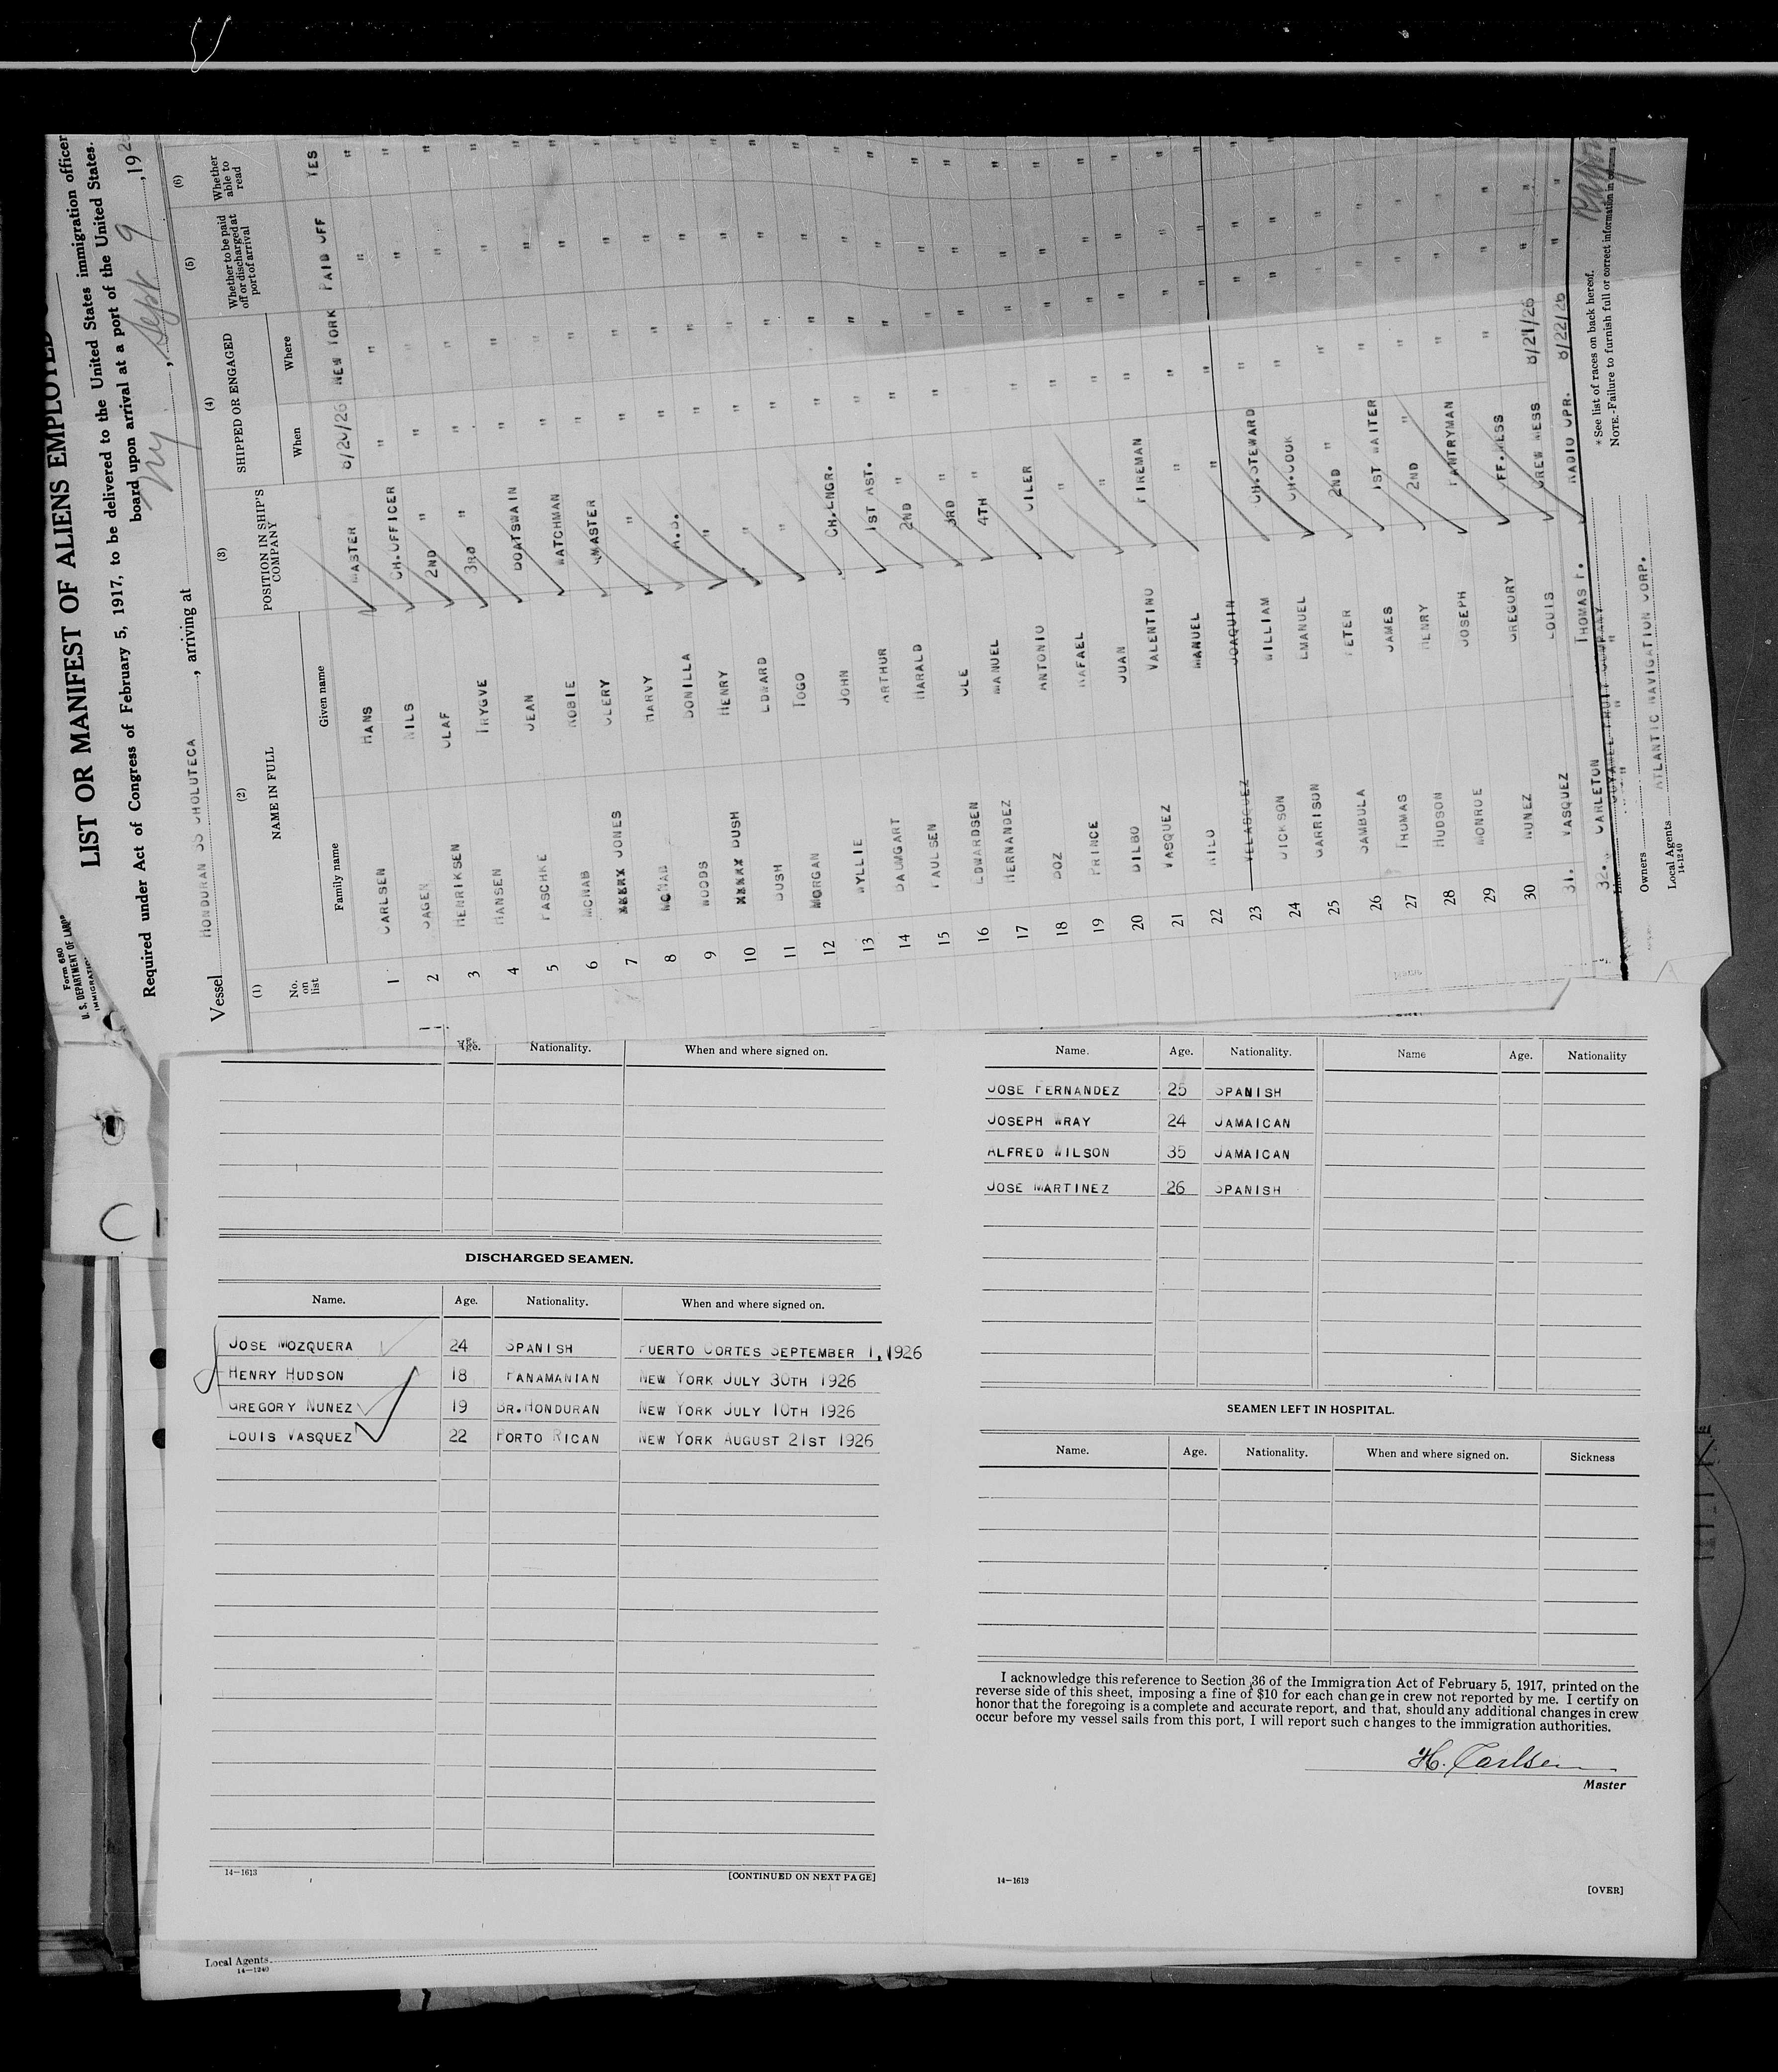 LIST OR MANIFEST OF ALIENS EMPLOYED
Form 680
U. S. DEPARTMENT OF LABOR
Required under Act of Congress of February 5, 1917, to be delivered to the United States immigration officer
board upon arrival at a port of the United States.
Vessel HONDURAN SS CHOLUTECA, arriving at NY, Sept 9, 192
(1) (2) (3) (4) (5) (6)
No. on list
NAME IN FULL
Family name Given name
POSITION IN SHIP'S COMPANY
SHIPPED OR ENGAGED
When Where
Whether to be paid off or discharged at port of arrival
Whether able to read
1 CARLSEN HANS MASTER 8/20/26 NEW YORK PAID OFF YES
2 NILS CH.OFFICER " " " "
3 HENRIKSEN OLAF 2ND " " " " "
4 HANSEN TRYGVE 3RD " " " " "
5 PASCHKE JEAN BOATSWAIN " " " "
6 MCNAB ROBIE WATCHMAN " " " "
7 JONES CLERY QMASTER " " " "
8 MCNAB HARVY " " " " "
9 WOODS BONILLA A.B. " " " "
10 BUSH HENRY " " " " "
11 BUSH EDWARD " " " " "
12 MORGAN TOGO " " " " "
13 WYLLIE JOHN CH.ENGR. " " " "
14 BAUMGART ARTHUR 1ST AST. " " " "
15 PAULSEN HARALD 2ND " " " " "
16 EDWARDSEN OLE 3RD " " " " "
17 HERNANDEZ MANUEL 4TH " " " " "
18 BOZ ANTONIO OILER " " " "
19 PRINCE RAFAEL " " " " "
20 BILBO JUAN " " " " "
21 VASQUEZ VALENTINO FIREMAN " " " "
22 MANUEL " " " " "
23 VELASQUEZ JOAQUIN " " " " "
24 DICKSON WILLIAM CH.STEWARD " " " "
25 GARRISON EMANUEL CH.COOK " " " "
26 SAMBULA PETER 2ND " " " " "
27 THOMAS JAMES 1ST WAITER " " " "
28 HUDSON HENRY 2ND " " " " "
29 MONROE JOSEPH PANTRYMAN " " " "
30 NUNEZ GREGORY OFF.MESS " " " "
31. VASQUEZ LOUIS CREW MESS 8/21/26 " " "
32. CARLETON THOMAS F. RADIO OPR. 8/22/26 " "
* See list of races on back hereof.
NOTE.-Failure to furnish full or correct information in
Line CUYAMEL FRUIT COMPANY
Owners " "
Local Agents ATLANTIC NAVIGATION CORP.
14-1240
Age. Nationality. When and where signed on.
DISCHARGED SEAMEN.
Name. Age. Nationality. When and where signed on.
JOSE MOZQUERA 24 SPANISH PUERTO CORTES SEPTEMBER 1, 1926
HENRY HUDSON 18 PANAMANIAN NEW YORK JULY 30TH 1926
GREGORY NUNEZ 19 BR.HONDURAN NEW YORK JULY 10TH 1926
LOUIS VASQUEZ 22 PORTO RICAN NEW YORK AUGUST 21ST 1926
14—1613
[CONTINUED ON NEXT PAGE]
Name. Age. Nationality. Name Age. Nationality
JOSE FERNANDEZ 25 SPANISH
JOSEPH WRAY 24 JAMAICAN
ALFRED WILSON 35 JAMAICAN
JOSE MARTINEZ 26 SPANISH
SEAMEN LEFT IN HOSPITAL.
Name. Age. Nationality. When and where signed on. Sickness
I acknowledge this reference to Section 36 of the Immigration Act of February 5, 1917, printed on the
reverse side of this sheet, imposing a fine of $10 for each change in crew not reported by me. I certify on
honor that the foregoing is a complete and accurate report, and that, should any additional changes in crew
occur before my vessel sails from this port, I will report such changes to the immigration authorities.
H. Carlsen
Master
14—1613
[OVER]
Local Agents
14—1240